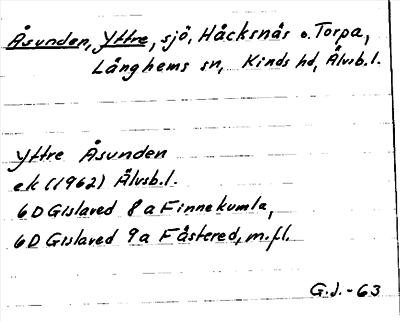 Åsunden, Yttre, sjö, Håcksnäs o. Torpa,
Långhems sn, Kinds hd, Älvsb.l.
Yttre Åsunden
ek (1962) Älvsb.l.
6D Gislaved 8a Finnekumla,
6D Gislaved 9a Fåstered, m.fl.
G.J.-63